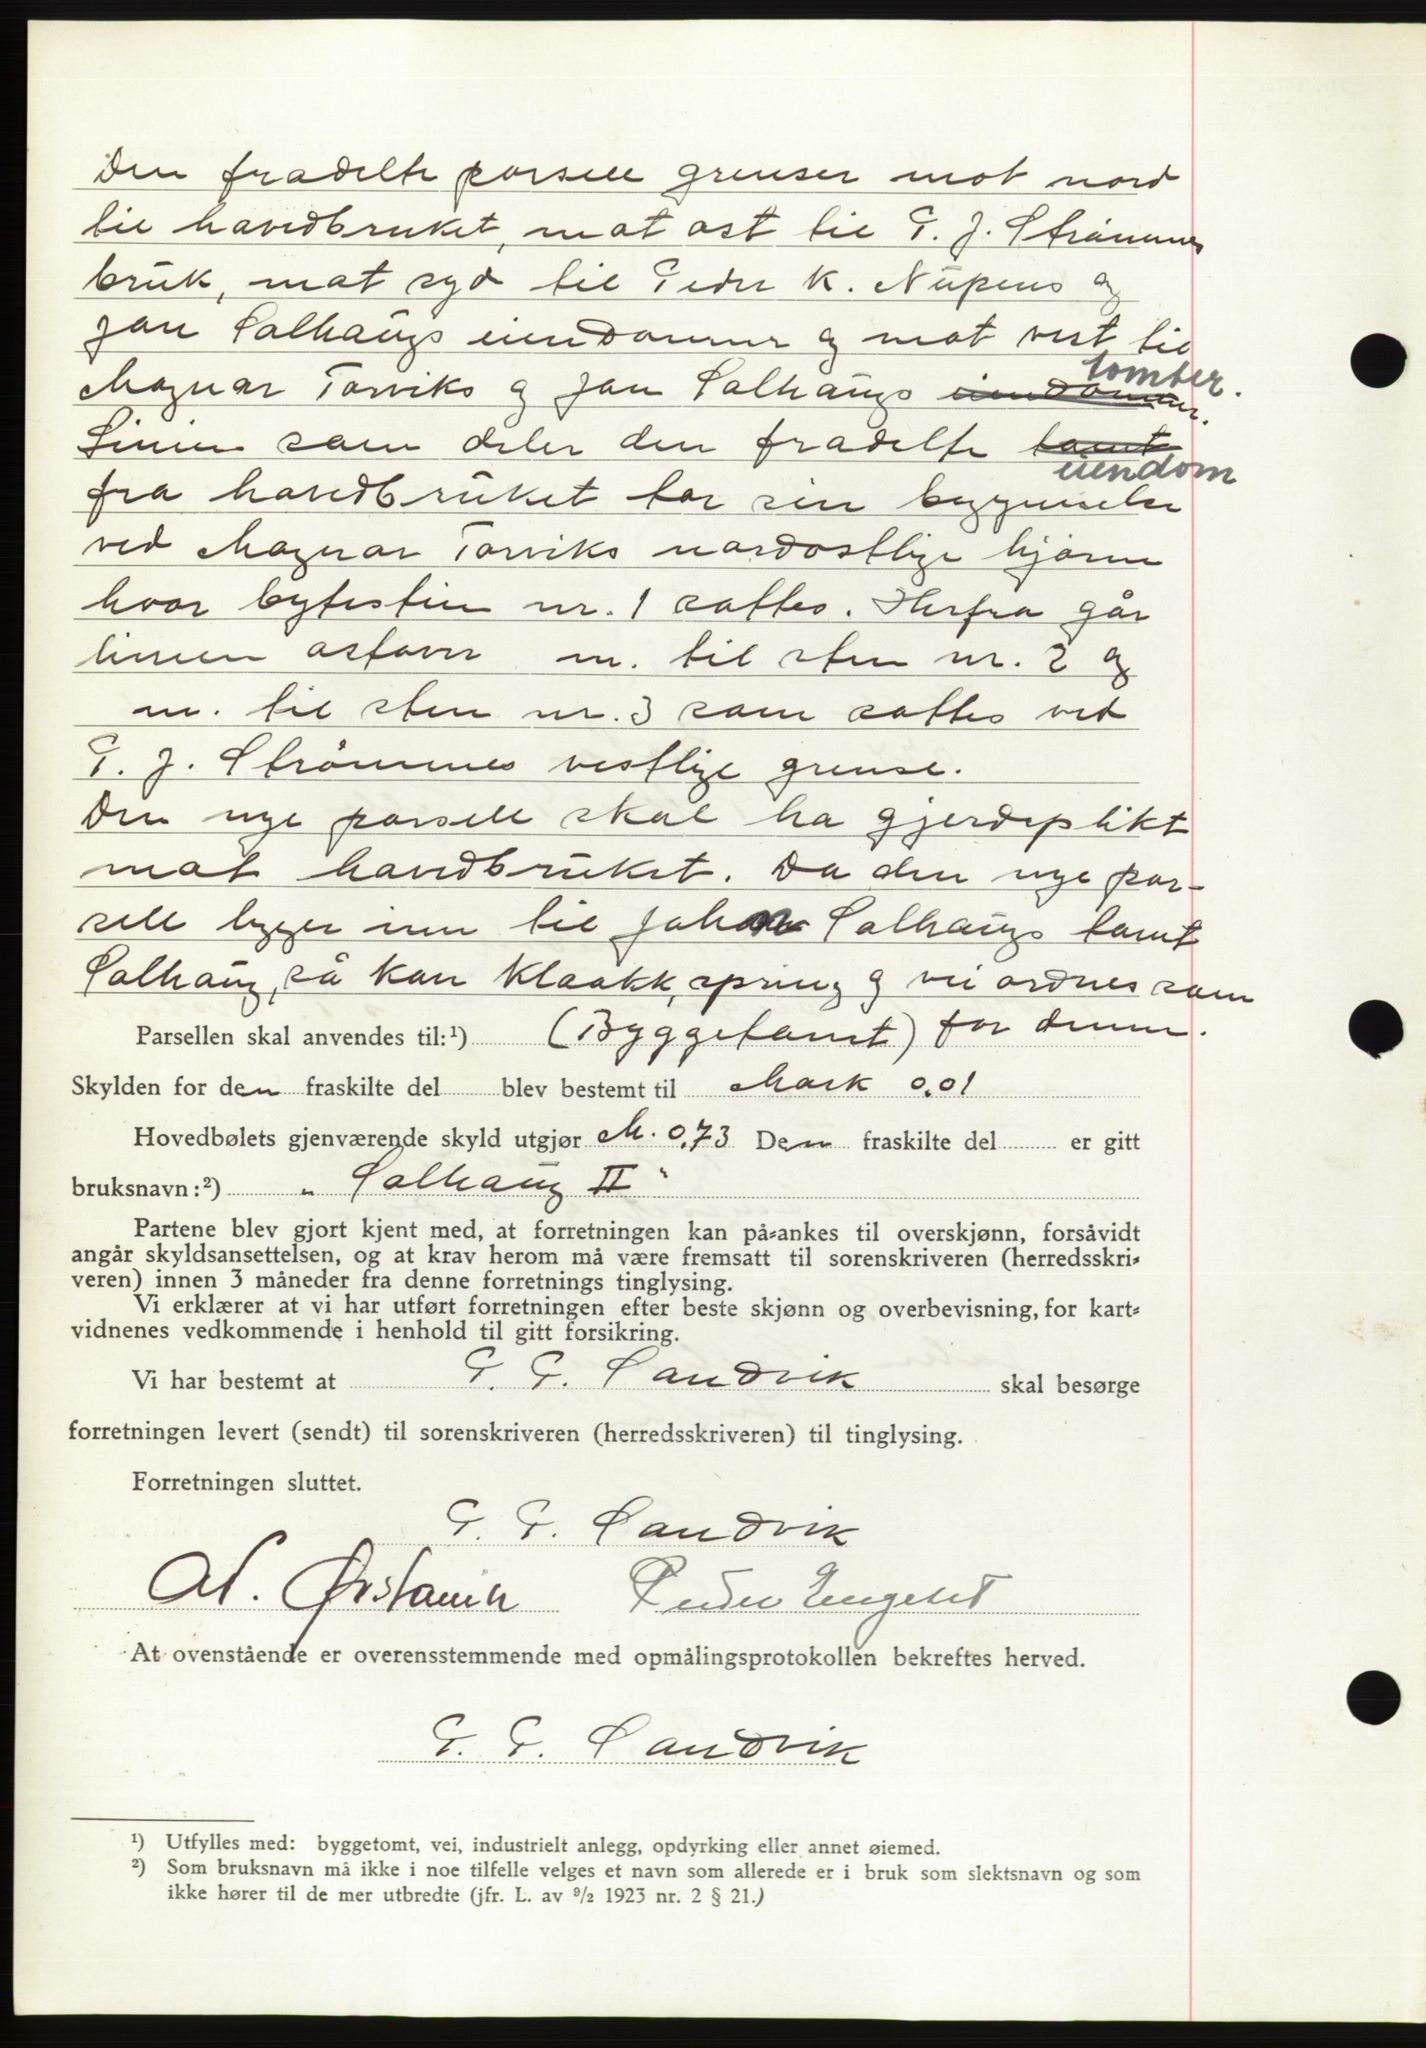 Den fradelte parsell grenser mot nord
til hovedbruket, mot ost til P. J. Strömmes
bruk, mot syd til Peder K. Nupens og
Jon Solhaugs eiendommer og mot vest til
Magnar Torviks og Jon Solhaugs eiendommer. tomter.
Linien som deler den fradelte tomt eiendom
fra hovedbruket tar sin begynnelse
ved Magnar Torviks nordostlige hjörne
hvor bytestein nr. 1 sattes. Herfra går
linien ostover m. til sten nr. 2 og
m. til sten nr. 3 som sattes ved
P. J. Strömmes vestlige grense.
Den nye parsell skal ha gjerdeplikt
mot hovedbruket. Da den nye par-
sell bygger inn til John Solhaugs tomt
Solhaug, så kan kloakk, spring og vei ordnes som
Parsellen skal anvendes til:¹) (Byggetomt) for denne.
Skylden for den fraskilte del blev bestemt til Mark 0.01
Hovedbølets gjenværende skyld utgjør M. 0,73 Den fraskilte del er gitt
bruksnavn:²) „Solhaug II"
Partene blev gjort kjent med, at forretningen kan på-ankes til overskjønn, forsåvidt
angår skyldsansettelsen, og at krav herom må være fremsatt til sorenskriveren (herredsskri-
veren) innen 3 måneder fra denne forretnings tinglysing.
Vi erklærer at vi har utført forretningen efter beste skjønn og overbevisning, for kart-
vidnenes vedkommende i henhold til gitt forsikring.
Vi har bestemt at P. P. Sandvik skal besørge
forretningen levert (sendt) til sorenskriveren (herredsskriveren) til tinglysing.
Forretningen sluttet.
P. P. Sandvik
Peder Engeset
At ovenstående er overensstemmende med opmålingsprotokollen bekreftes herved.
P. P. Sandvik
¹) Utfylles med: byggetomt, vei, industrielt anlegg, opdyrking eller annet øiemed.
²) Som bruksnavn må ikke i noe tilfelle velges et navn som allerede er i bruk som slektsnavn og som
ikke hører til de mer utbredte (jfr. L. av 9/2 1923 nr. 2 § 21.)